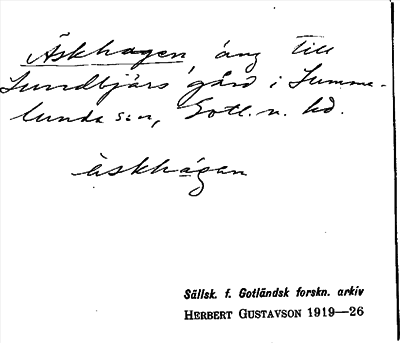 Äskhagen, äng till
Lundbjärs gård i Lumme-
lunda s:n, Gotl. n. hd.
äskhágan
Sällsk. f. Gotländsk forskn. arkiv
HERBERT GUSTAVSON 1919—26